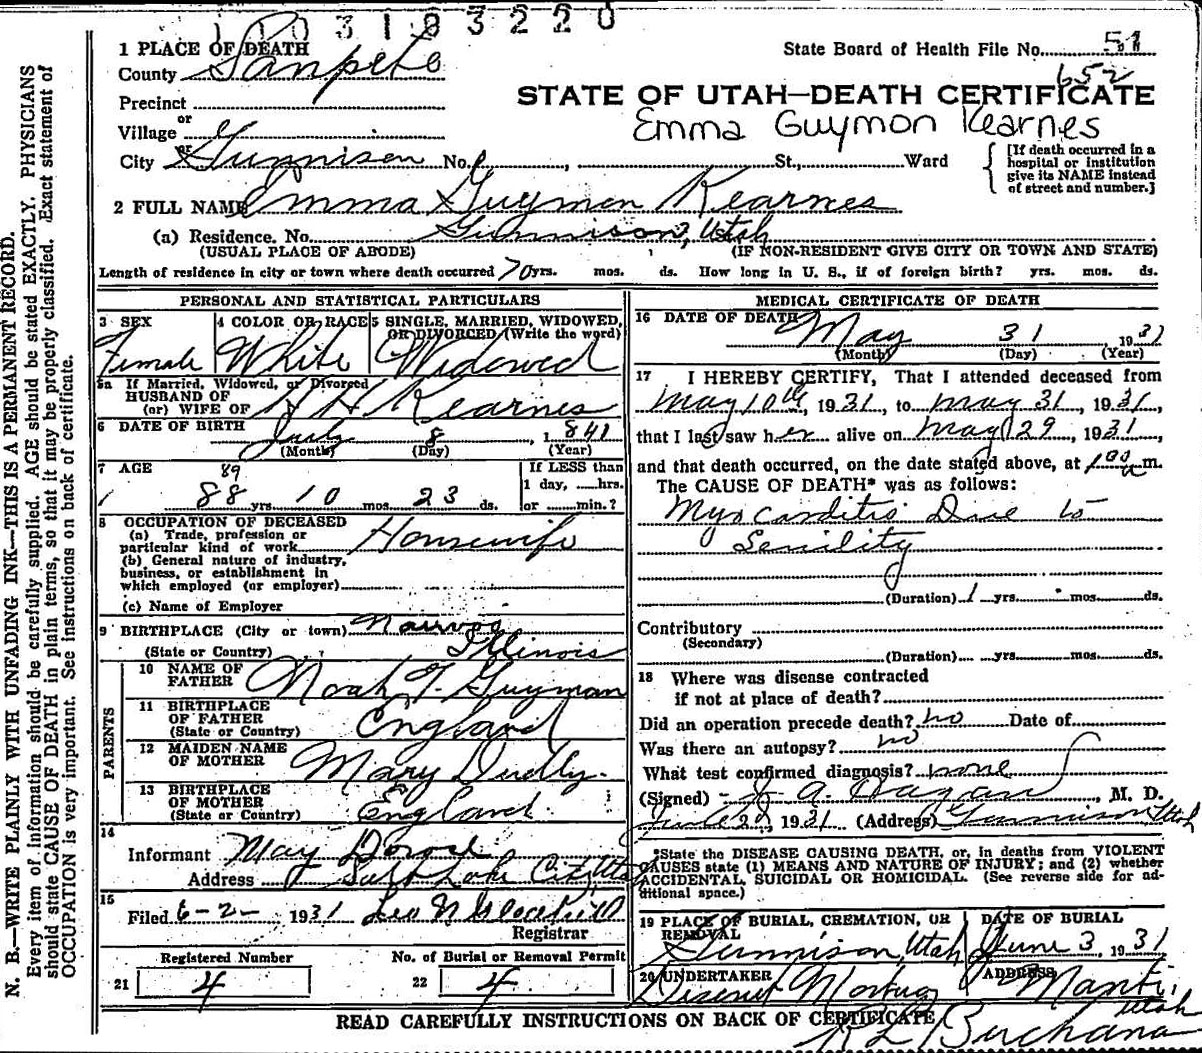 1003103220
1 PLACE OF DEATH
State Board of Health File No. 51
County Sanpete
652
Precinct
STATE OF UTAH—DEATH CERTIFICATE
or
Village
Emma Guymon Kearnes
or
City Gunnison No. , St., Ward
[If death occurred in a
hospital or institution
give its NAME instead
of street and number.]
2 FULL NAME Emma Guymon Kearnes
(a) Residence. No. Gunnison, Utah
(USUAL PLACE OF ABODE) (IF NON-RESIDENT GIVE CITY OR TOWN AND STATE)
Length of residence in city or town where death occurred 70 yrs. mos. ds. How long in U. S., if of foreign birth? yrs. mos. ds.
PERSONAL AND STATISTICAL PARTICULARS
3 SEX
Female
4 COLOR OR RACE
White
5 SINGLE, MARRIED, WIDOWED,
OR DIVORCED (Write the word)
Widowed
5a If Married, Widowed, or Divorced
HUSBAND OF
(or) WIFE OF H Kearnes
6 DATE OF BIRTH July 8, 1841
(Month) (Day) (Year)
7 AGE 89
88 yrs. 10 mos. 23 ds.
If LESS than
1 day, hrs.
or min.?
8 OCCUPATION OF DECEASED
(a) Trade, profession or
particular kind of work Housewife
(b) General nature of industry,
business, or establishment in
which employed (or employer)
(c) Name of Employer
9 BIRTHPLACE (City or town) Nauvoo
(State or Country) Illinois
PARENTS
10 NAME OF
FATHER Noah T. Guyman
11 BIRTHPLACE
OF FATHER
(State or Country) England
12 MAIDEN NAME
OF MOTHER Mary Dudly.
13 BIRTHPLACE
OF MOTHER
(State or Country) England.
14
Informant May
Address Salt Lake City, Utah
15
Filed 6-2- 1931 Leo N
Registrar
Registered Number
21 4
No. of Burial or Removal Permit
22 4
MEDICAL CERTIFICATE OF DEATH
16 DATE OF DEATH May 31 1931
(Month) (Day) (Year)
17 I HEREBY CERTIFY, That I attended deceased from
May 10th, 1931, to May 31, 1931,
that I last saw her alive on May 29, 1931,
and that death occurred, on the date stated above, at 1 00 a m.
The CAUSE OF DEATH* was as follows:
Myocarditis Due to
Senility
(Duration) 1 yrs. mos. ds.
Contributory
(Secondary)
(Duration) yrs. mos. ds.
18 Where was disease contracted
if not at place of death?
Did an operation precede death? no Date of
Was there an autopsy? no
What test confirmed diagnosis? none
(Signed) A. Hagan, M. D.
June 2, 1931 (Address) Gunnison, Utah
*State the DISEASE CAUSING DEATH, or, in deaths from VIOLENT
CAUSES state (1) MEANS AND NATURE OF INJURY; and (2) whether
ACCIDENTAL, SUICIDAL OR HOMICIDAL. (See reverse side for ad-
ditional space.)
19 PLACE OF BURIAL, CREMATION, OR
REMOVAL
Gunnison, Utah
DATE OF BURIAL
June 3, 1931
20 UNDERTAKER
Deseret Mortuary
ADDRESS
Manti,
Utah
READ CAREFULLY INSTRUCTIONS ON BACK OF CERTIFICATE
R L Buchanan
N. B.—WRITE PLAINLY WITH UNFADING INK—THIS IS A PERMANENT RECORD.
Every item of information should be carefully supplied. AGE should be stated EXACTLY. PHYSICIANS
should state CAUSE OF DEATH in plain terms, so that it may be properly classified. Exact statement of
OCCUPATION is very important. See instructions on back of certificate.